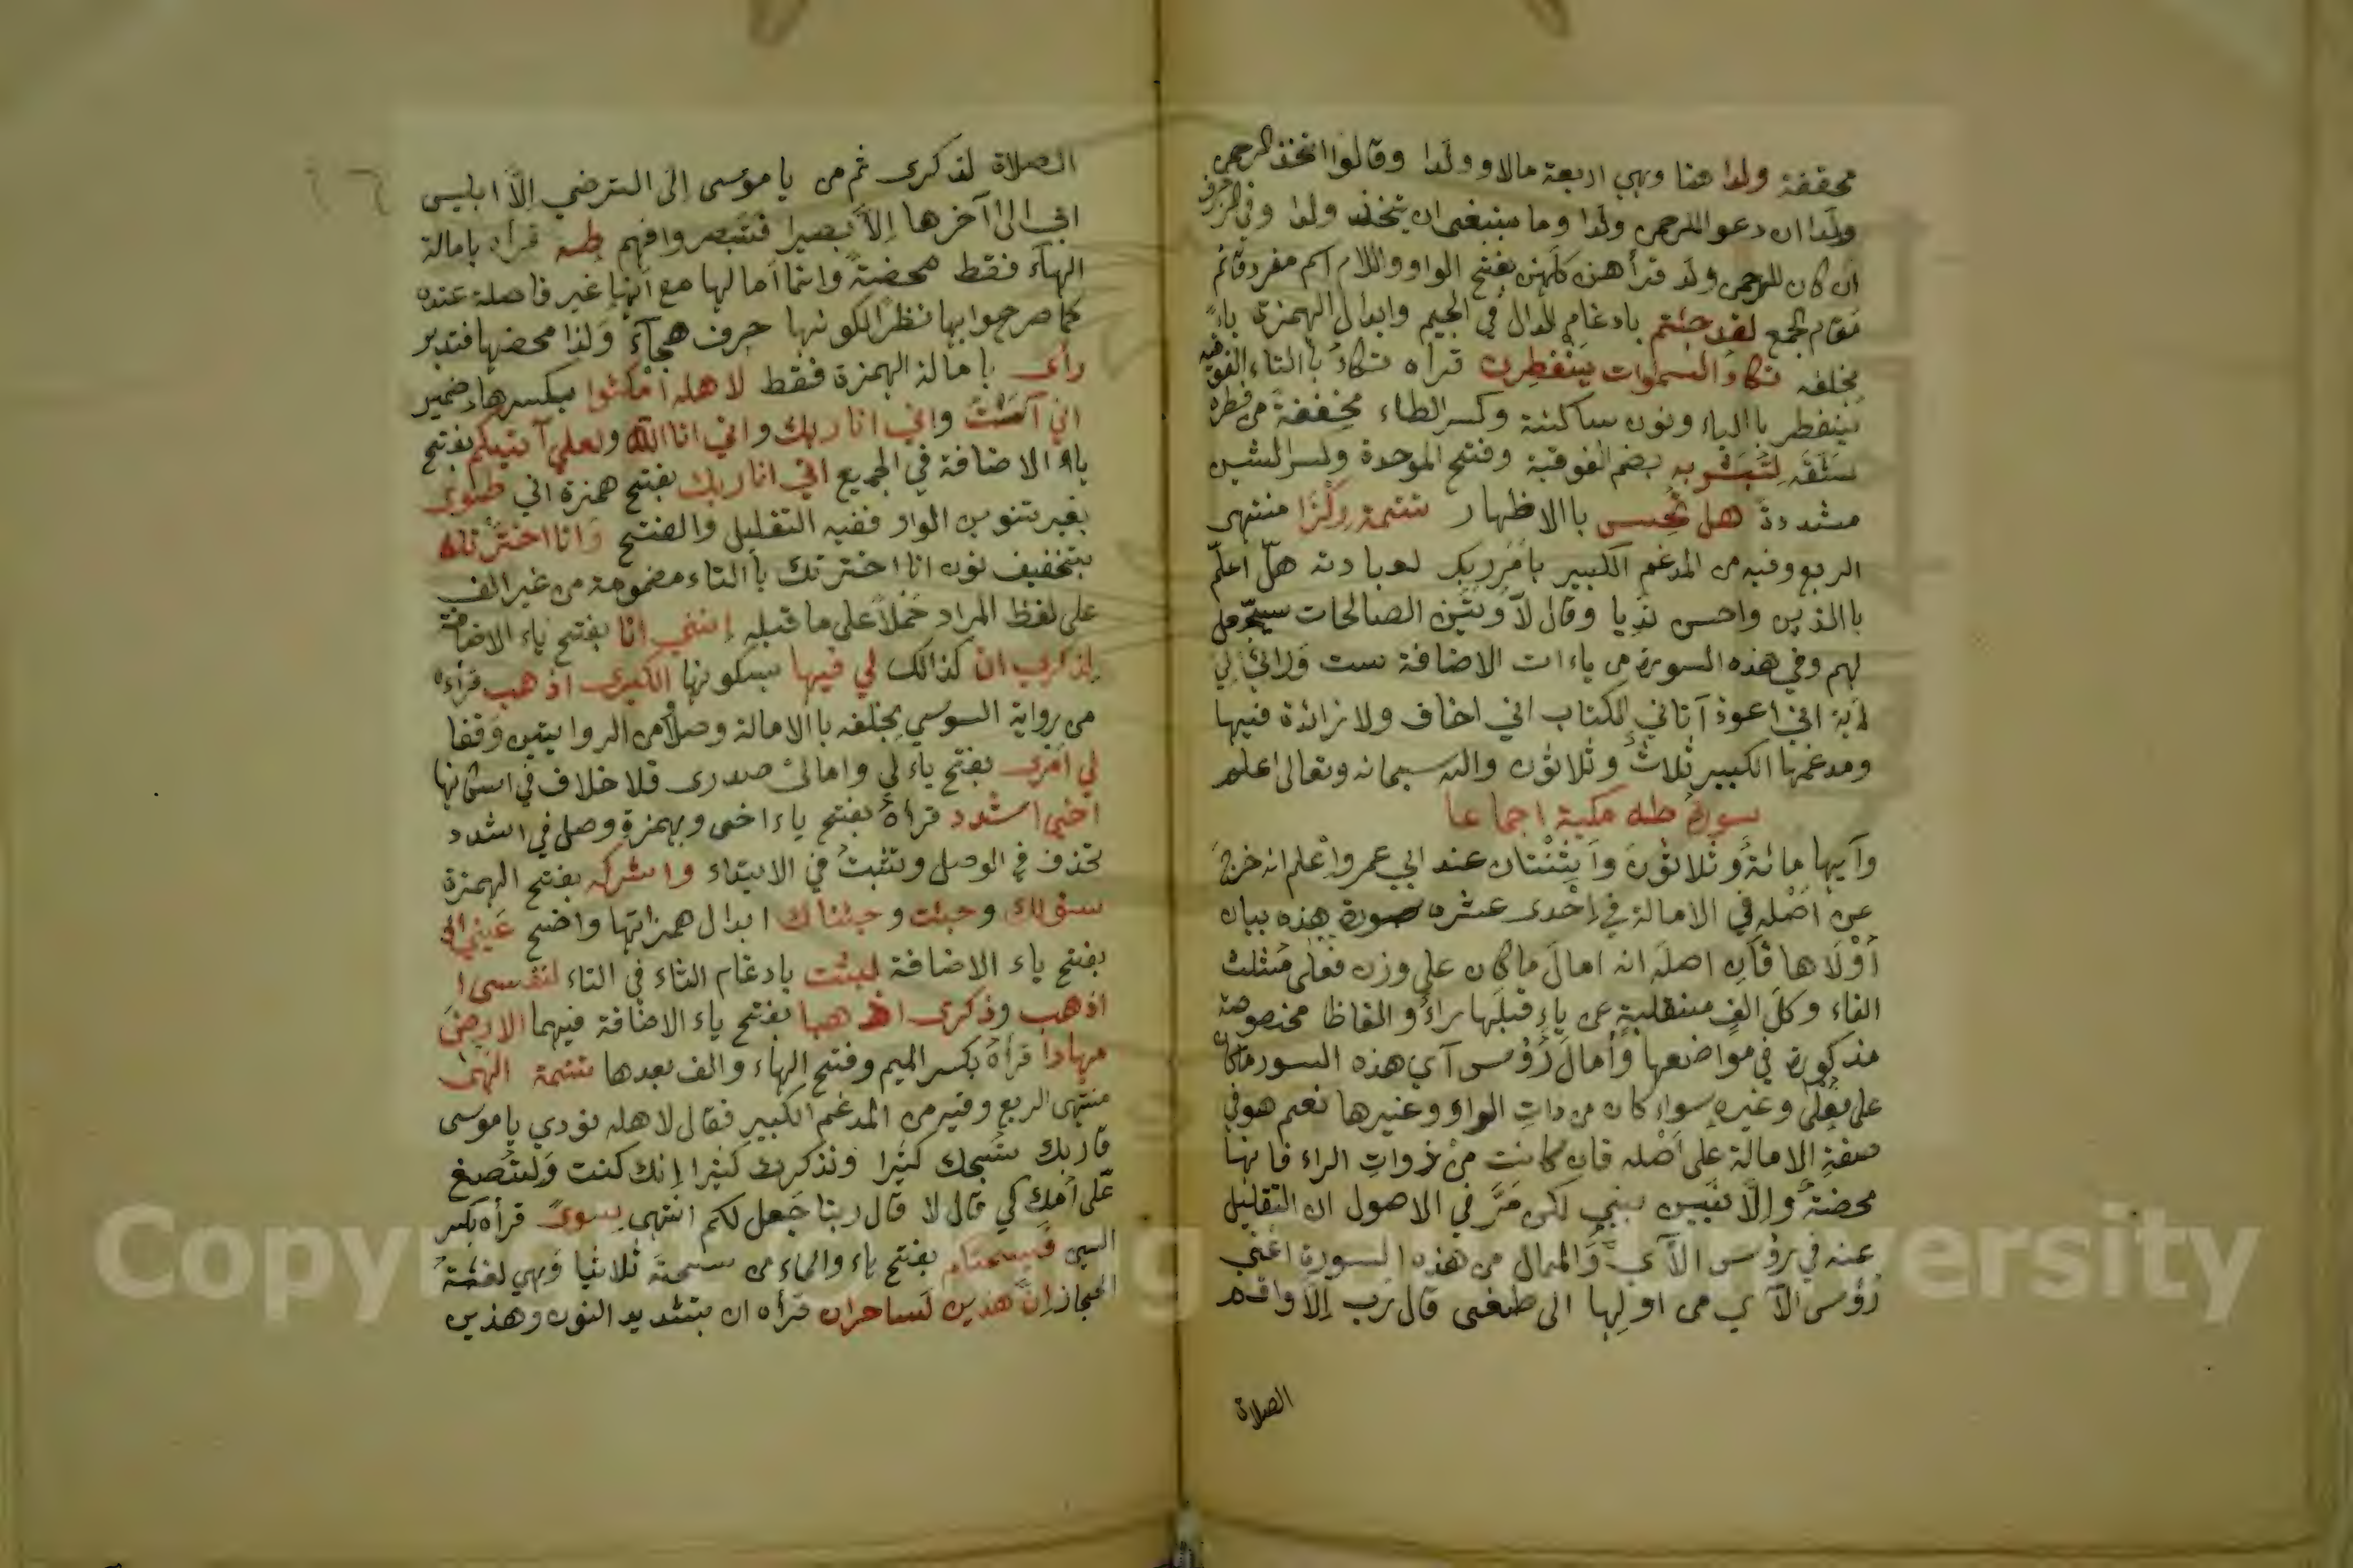 محققة ولدا هنا وهي اربعة مالا وولدا وقالوا اتخذ الرحمن
ولدا ان دعوا للرحمن ولدا وما ينبغي ان يتخذ ولدا وفي الزخرف
ان كان للرحمن ولد قرأ هن كلهن بفتح الواو واللام اسم مفرد قائم
مقام الجمع لقد جئتم بادغام الدال في الجيم وابدال الهمزة ياء
بخلفه تكاد السموات ينفطرن قرأه تكاد باالتاء الفوقيه
ينفطر باالياء ونون ساكنة وكسر الطاء مخففة من فطره
شقه لتبشر به بضم الفوقية وفتح الموحدة وكسر الشين
مشددة هل تحس باالاظهار تتمة ركزا منتهى
الربع وفيه من المدغم الكبير بامر ربك لعبادته هل اعلم
باالذين واحسن نديا وقال لأوتين الصالحات سيجعل
لهم وفي هذه السورة من ياءات الاضافة ست ورائي لي
أية اني اعوذ آتاني الكتاب اني اخاف ولا زائدة فيها
ومدغمها الكبير ثلاث وثلاثون والله سبحانه وتعالى اعلم
سورة طه مكية اجماعا
وآيها مائة وثلاثون وآيثنتان عند ابي عمرو اعلم انه خرج
عن اصله في الامالة في احدى عشره سورة هذه بيان
أولاها فان اصله انه امال ما كان على وزن فعلى مثلث
الفاء وكل الف منقلبة عن ياء قبلها راء والفاظا مخصوصة
مذكورة في مواضعها وأمال رؤس آي هذه السور ما كان
على فعلى وغيره سواء كان من ذات الواو وغيرها نعم هو في
صفة الامالة على اصله فان كانت من ذوات الراء فانها
محضة والا فبين بين لكن مر في الاصول ان التقليل
عنه في رؤس الآي والممال من هذه السورة اعني
رؤس الآي من اولها الى طغى قال رب إلا واقم
الصلاة
الصلاة لذكرى ثم من يا موسى إلى لترضي إلا ابليس
ابى الى آخرها إلا بصيرا فتبصر وافهم طه قرأه بامالة
الهآء فقط محضة وانما امالها مع انها غير فاصلة عنده
كما صرحوا بها نظرا لكونها حرف هجآء ولذا محضها فتدبر
رأى بامالة الهمزة فقط لاهله امكثوا بكسر هاء ضمير
اني آنست واني انا ربك واني انا الله ولعلي آتيكم بفتح
ياء الاضافة في الجميع اني انا ربك بفتح همزة اني طوى
بغير تنوين الواو ففيه التقليل والفتح وانا اخترتك
بتخفيف نون انا اخترتك باالتاء مضمومة من غير الف
على لفظ المراد حملا على ما قبله إنني انا بفتح ياء الاضافة
لذكرى ان كذالك لي فيها بسكونها الكبرى اذهب قرأه
من رواية السوسي بخلفه باالامالة وصلا من الروايتين وقفا
لي امرى بفتح ياء لي واما لي صدرى فلا خلاف في اسكانها
اخي اشدد قرأه بفتح ياء اخى وبهمزة وصل في اشدد
تحذف في الوصل وتثبت في الابتداء واشركه بفتح الهمزة
سؤلك وجئت وجئناك ابدال همزاتها واضح عيني اذ
بفتح ياء الاضافة لبثت بادغام الثاء في التاء لنفسى ا
اذهب وذكرى اذهبا بفتح ياء الاضافة فيهما الارض
مهادا قرأه بكسر الميم وفتح الهاء والف بعدها تتمة النهى
منتهى الربع وفيه من المدغم الكبير فقال لاهله نودي يا موسى
قا ربك نسبحك كثيرا ونذكرك كثيرا إنك كنت ولتصنع
على امك كي قال لا قال ربنا جعل لكم انتهى سوى قرأه بكسر
السين فيسحتكم بفتح ياء والحاء من سحته ثلاثيا وهي لغة
الحجاز إن هذين لساحران قرأه ان بتشديد النون وهذين